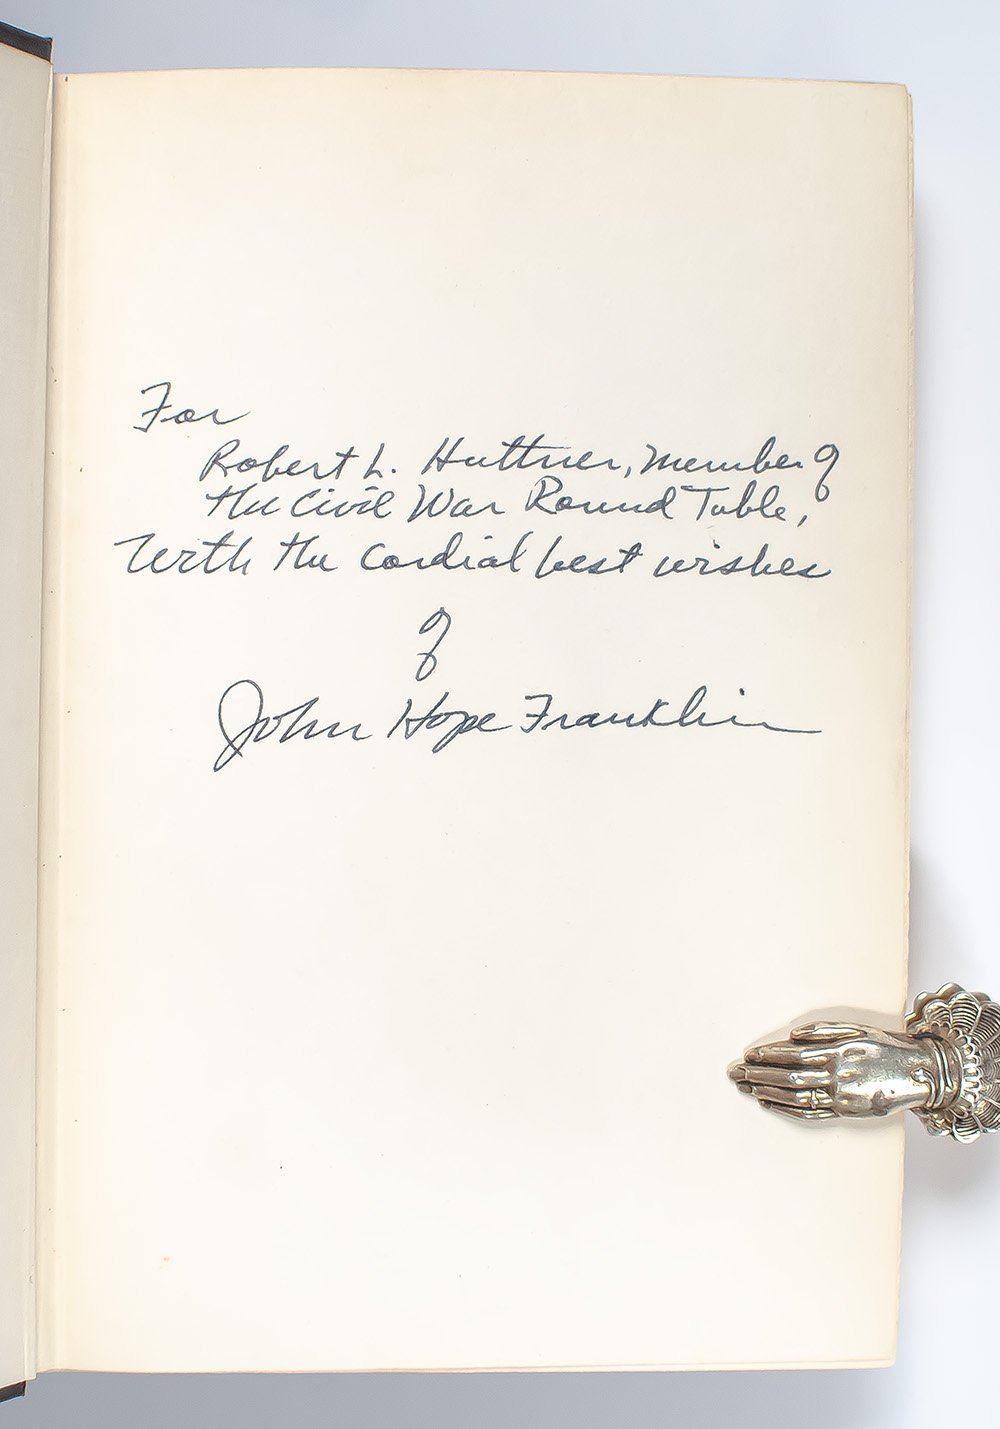 For
Robert L. Huttner, Member of
the Civil War Round Table,
With the cordial best wishes
of
John Hope Franklin